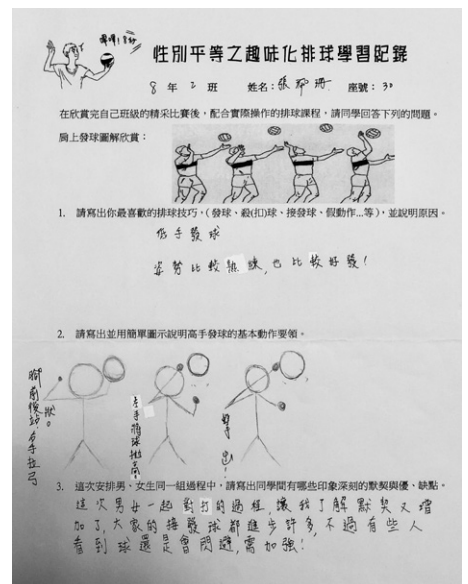 性別平等之趣味化排球學習記錄
8 年 2 班 姓名:張 座號:30
在欣賞完自己班級的精采比賽後,配合實際操作的排球課程,請同學回答下列的問題。
肩上發球圖解欣賞:
1. 請寫出你最喜歡的排球技巧,(發球、殺(扣)球、接發球、假動作...等),並說明原因。
低手發球
姿勢比較熟練,也比較好發!
2. 請寫出並用簡單圖示說明高手發球的基本動作要領。
腳前後站,右手拉弓狀。
左手將球拋高
擊出!
3. 這次安排男、女生同一組過程中,請寫出同學間有哪些印象深刻的默契與優、缺點。
這次男女一起對打的過程,讓我了解默契又增
加了,大家的接發球都進步許多,不過有些人
看到球還是會閃避,需加強!